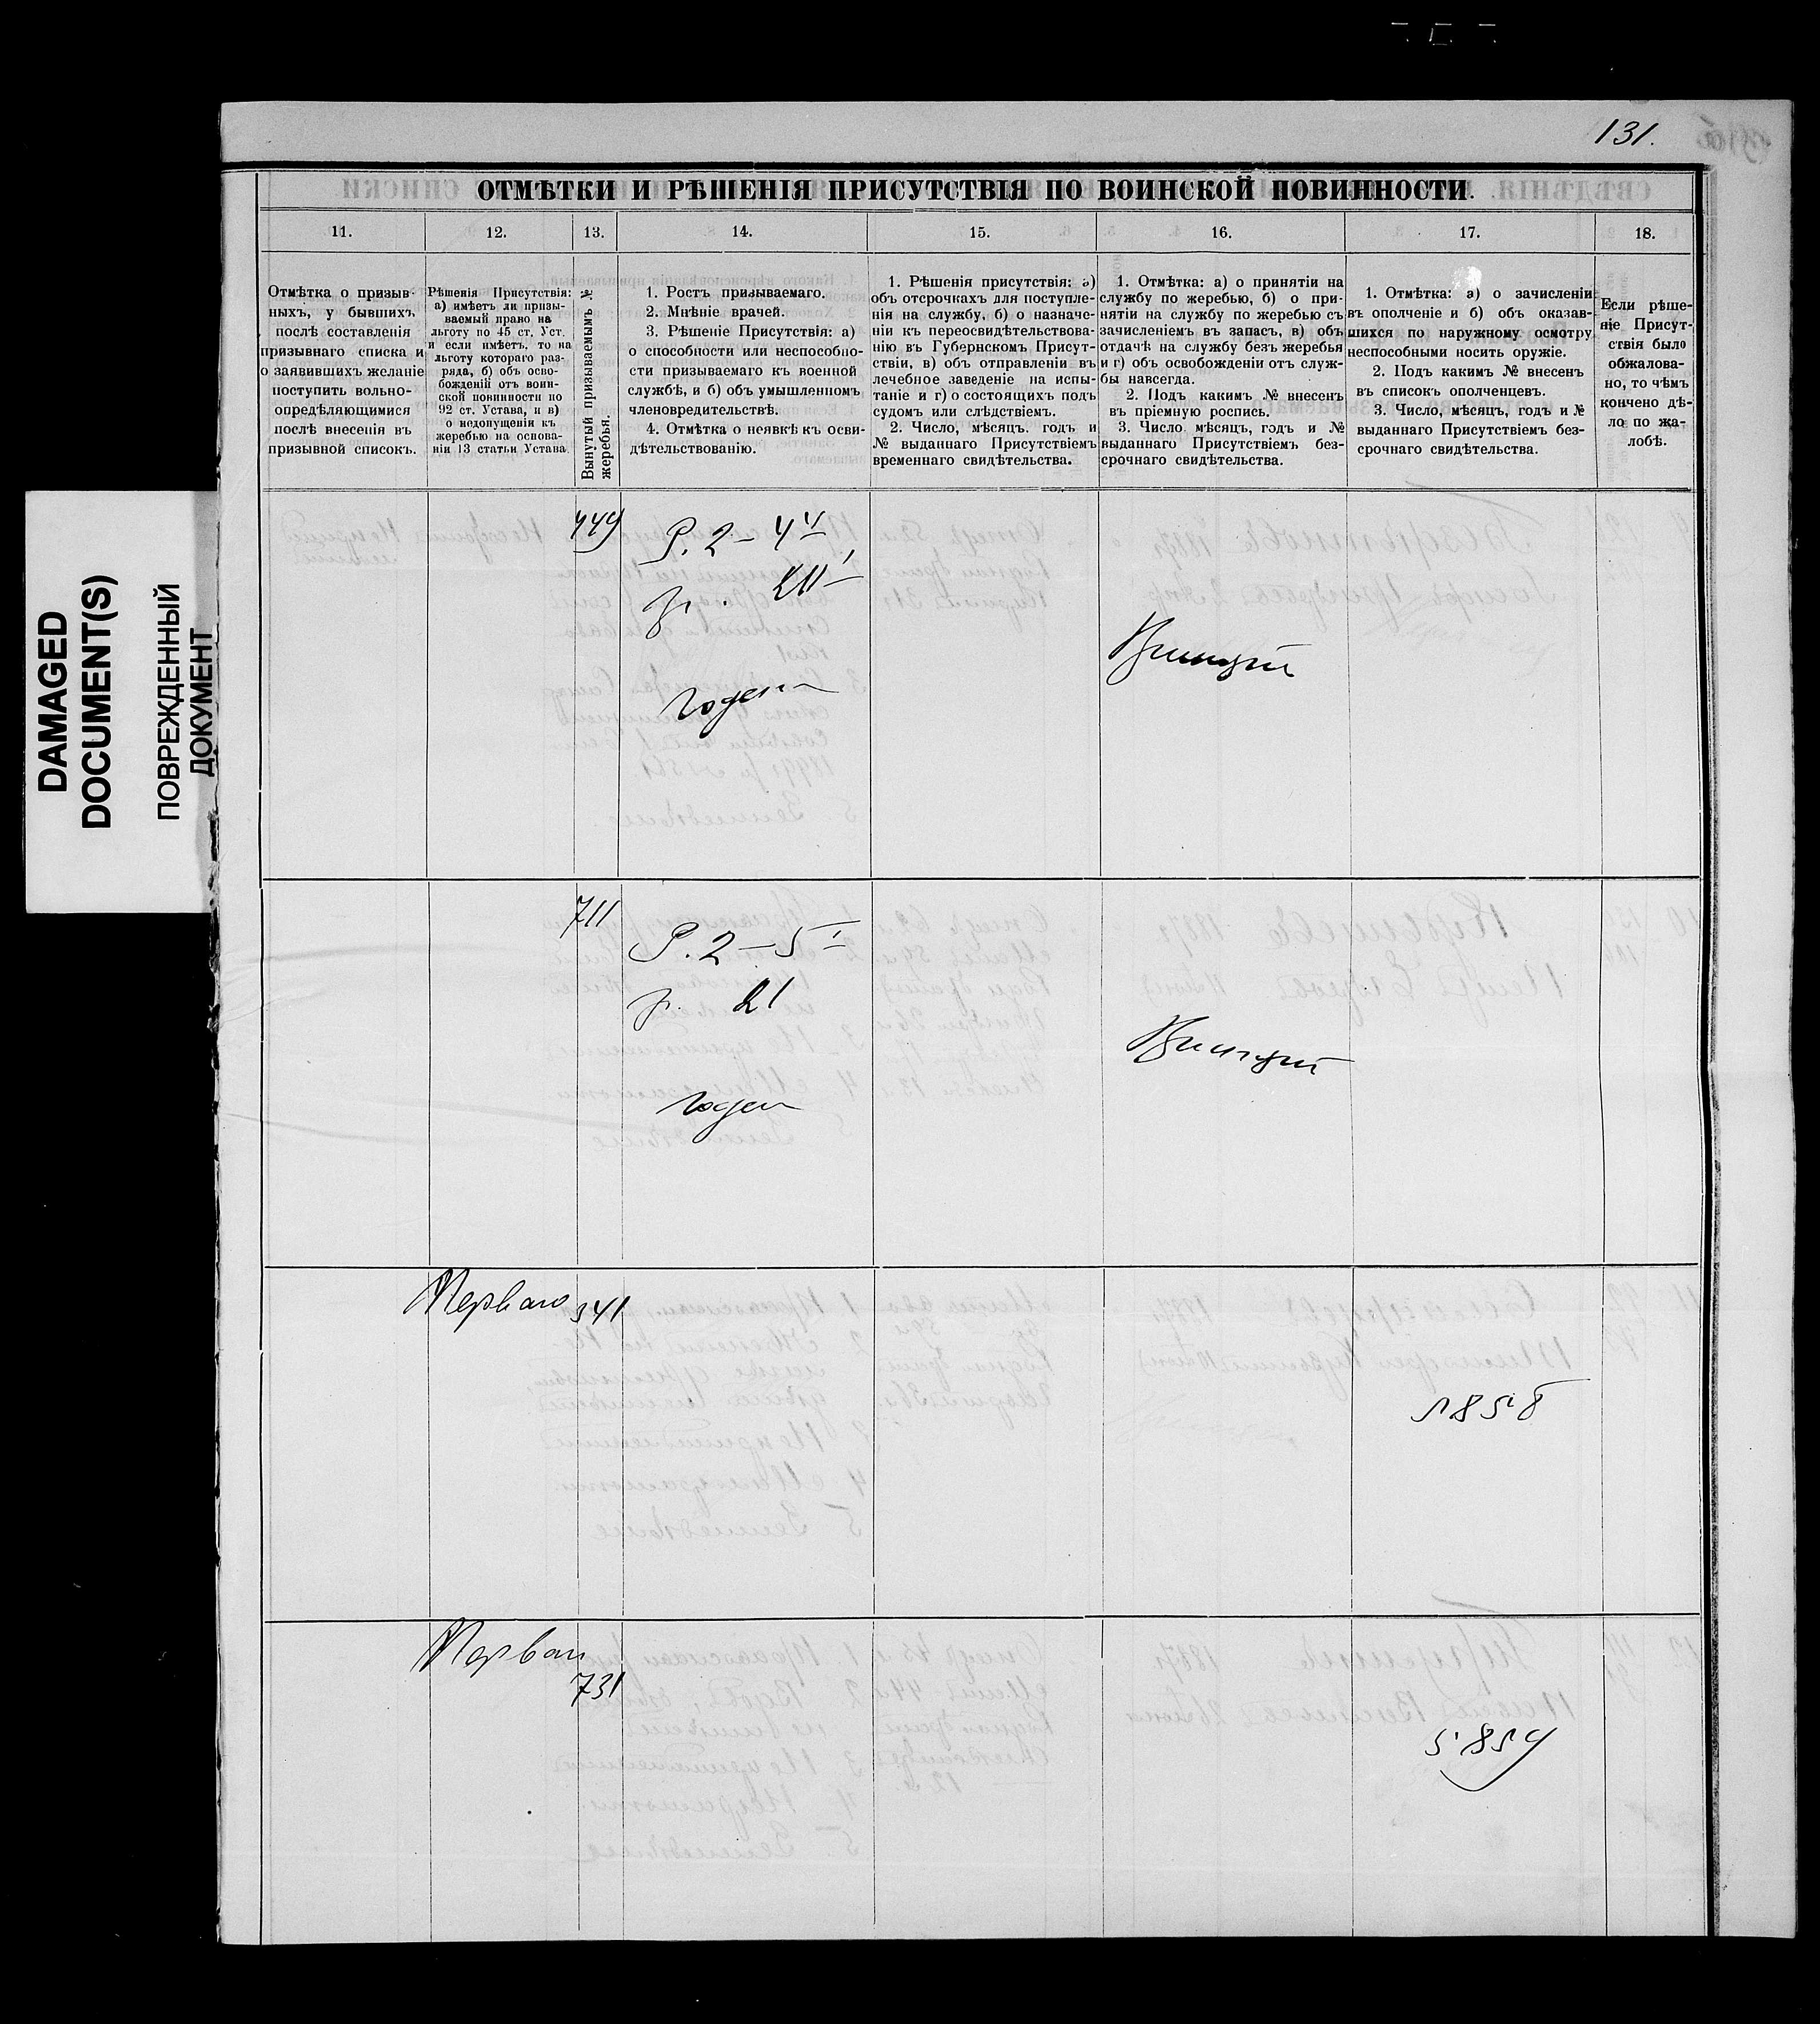 131.
DAMAGED
DOCUMENT(S)
ПОВРЕЖДЕННЫЙ
ДОКУМЕНТ
ОТМѢТКИ И РѢШЕНІЯ ПРИСУТСТВІЯ ПО ВОИНСКОЙ ПОВИННОСТИ.
11.
12.
13.
14.
15.
16.
17.
18.
Отмѣтка о призыв-
ныхъ, у бывшихъ
послѣ составленія
призывнаго списка и
о заявившихъ желаніе
поступить вольно-
опредѣляющимися
послѣ внесенія въ
призывной списокъ.
Рѣшенія Присутствія:
а) имѣетъ ли призы-
ваемый право на
льготу по 45 ст. Уст.
и если имѣетъ, то на
льготу котораго раз-
ряда, б) объ осво-
божденіи отъ воин-
ской повинности по
92 ст. Устава, и в)
о недопущеніи къ
жеребью на основа-
ніи 13 статьи Устава
Вынутый призываемымъ №
жеребья.
1. Ростъ призываемаго.
2. Мнѣніе врачей.
3. Рѣшеніе Присутствія: а)
о способности или неспособно-
сти призываемаго къ военной
службѣ, и б) объ умышленномъ
членовредительствѣ.
4. Отмѣтка о неявкѣ къ осви-
дѣтельствованію.
1. Рѣшенія присутствія: а)
объ отсрочкахъ для поступле-
нія на службу, б) о назначе-
ніи къ переосвидѣтельствова-
нію въ Губернскомъ Присут-
ствіи, в) объ отправленіи въ
лечебное заведеніе на испы-
таніе и г) о состоящихъ подъ
судомъ или слѣдствіемъ.
2. Число, мѣсяцъ. годъ и
№ выданнаго Присутствіемъ
временнаго свидѣтельства.
1. Отмѣтка: а) о принятіи на
службу по жеребью, б) о при-
нятіи на службу по жеребью съ
зачисленіемъ въ запасъ, в) объ
отдачѣ на службу безъ жеребья
и г) объ освобожденіи отъ служ-
бы навсегда.
2. Подъ какимъ № внесенъ
въ пріемную роспись.
3. Число мѣсяцъ, годъ и №
выданнаго Присутствіемъ без-
срочнаго свидѣтельства.
1. Отмѣтка: а) о зачисленіи
въ ополченіе и б) объ оказав-
шихся по наружному осмотру
неспособными носить оружіе.
2. Подъ какимъ № внесенъ
въ списокъ ополченцевъ.
3. Число, мѣсяцъ, годъ и №
выданнаго Присутствіемъ без-
срочнаго свидѣтельства.
Если рѣше-
ніе Присут-
ствія было
обжалова-
но, то чѣмъ
кончено дѣ-
ло по жа-
лобѣ.
449
Р. 2 – 4
годен
Принятъ
711
Р. 2 – 5
г. 21
годен
Принятъ
Перваго
341
Перваго
731